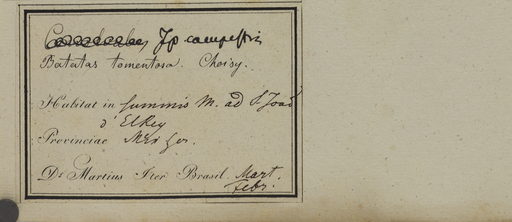 Jp campestris
Batatas tomentosa. Choisy.
Habitat in summis M. ad S. Joaõ
d'Elrey
Provinciae Min. Ger.
Dr Martius Iter Brasil. Mart.
Febr.